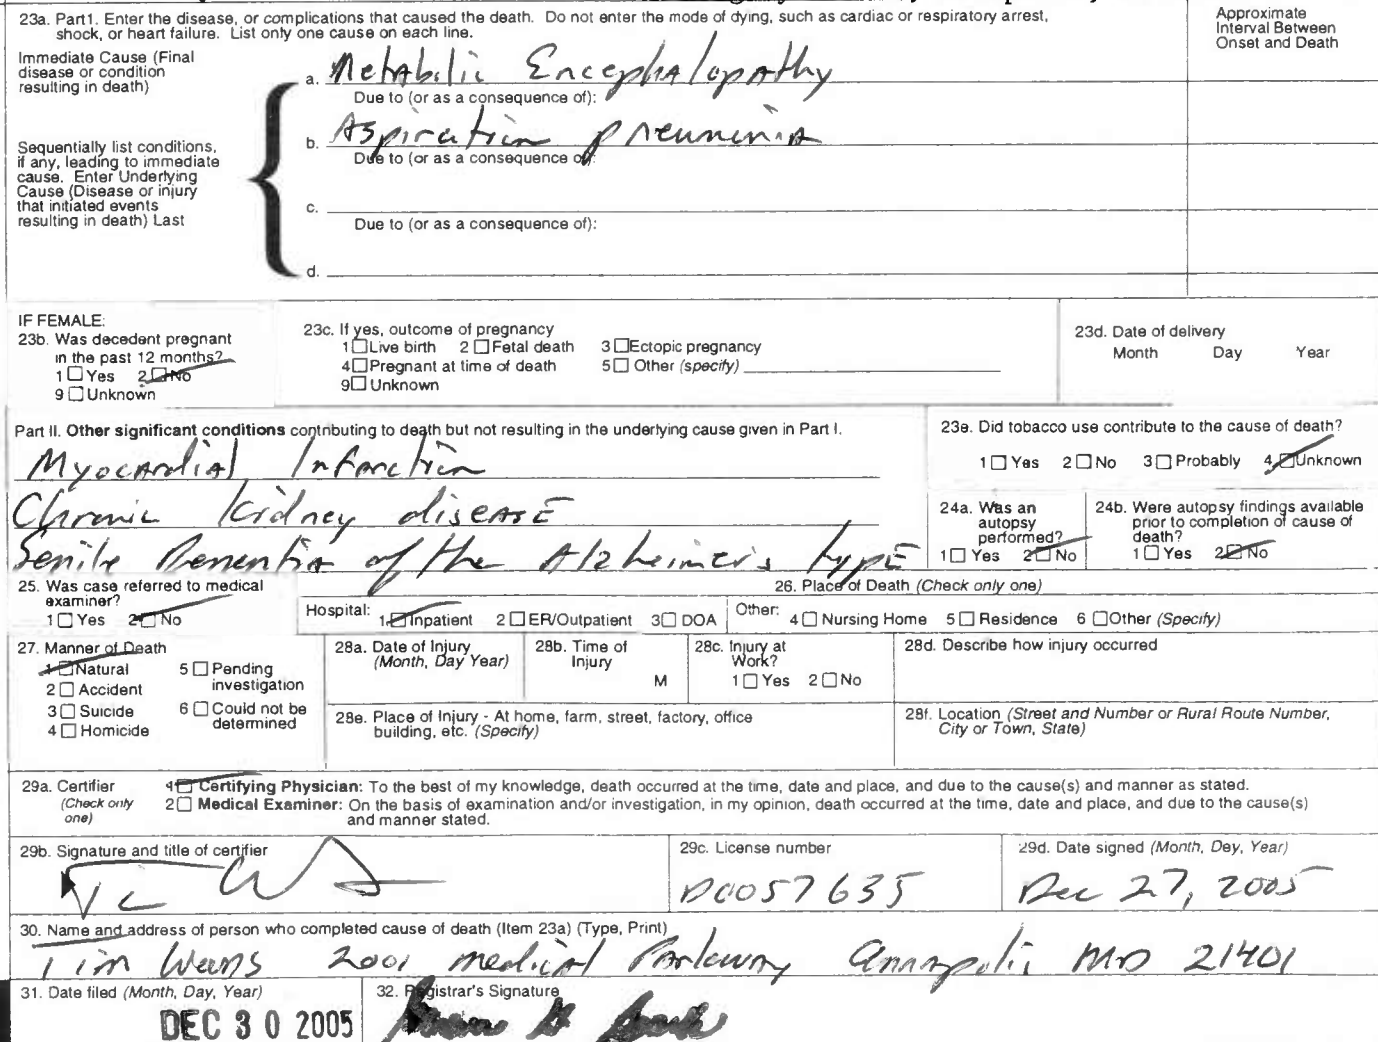 23a. Part1. Enter the disease, or complications that caused the death. Do not enter the mode of dying, such as cardiac or respiratory arrest,
shock, or heart failure. List only one cause on each line.
Approximate
Interval Between
Onset and Death
Immediate Cause (Final
disease or condition
resulting in death)
a. Metabolic Encephalopathy
Due to (or as a consequence of):
b. Aspiration pneumonia
Due to (or as a consequence of:
Sequentially list conditions,
if any, leading to immediate
cause. Enter Underlying
Cause (Disease or injury
that initiated events
resulting in death) Last
c.
Due to (or as a consequence of):
d.
IF FEMALE:
23b. Was decedent pregnant
in the past 12 months?
1 Yes 2 No
9 Unknown
23c. If yes, outcome of pregnancy
1 Live birth 2 Fetal death 3 Ectopic pregnancy
4 Pregnant at time of death 5 Other (specify)
9 Unknown
23d. Date of delivery
Month Day Year
Part II. Other significant conditions contributing to death but not resulting in the underlying cause given in Part I.
Myocardial Infarction
Chronic Kidney disease
Senile Dementia of the Alzheimer's type
23e. Did tobacco use contribute to the cause of death?
1 Yes 2 No 3 Probably 4 Unknown
24a. Was an
autopsy
performed?
1 Yes 2 No
24b. Were autopsy findings available
prior to completion of cause of
death?
1 Yes 2 No
25. Was case referred to medical
examiner?
1 Yes 2 No
26. Place of Death (Check only one)
Hospital: 1 Inpatient 2 ER/Outpatient 3 DOA Other: 4 Nursing Home 5 Residence 6 Other (Specify)
27. Manner of Death
1 Natural 5 Pending
investigation
2 Accident
3 Suicide 6 Could not be
determined
4 Homicide
28a. Date of Injury
(Month, Day Year)
28b. Time of
Injury
M
28c. Injury at
Work?
1 Yes 2 No
28d. Describe how injury occurred
28e. Place of Injury - At home, farm, street, factory, office
building, etc. (Specify)
28f. Location (Street and Number or Rural Route Number,
City or Town, State)
29a. Certifier
(Check only
one)
1 Certifying Physician: To the best of my knowledge, death occurred at the time, date and place, and due to the cause(s) and manner as stated.
2 Medical Examiner: On the basis of examination and/or investigation, in my opinion, death occurred at the time, date and place, and due to the cause(s)
and manner stated.
29b. Signature and title of certifier
29c. License number
D0057635
29d. Date signed (Month, Day, Year)
Dec 27, 2005
30. Name and address of person who completed cause of death (Item 23a) (Type, Print)
Tim 2001 Medical Parkway Annapolis MD 21401
31. Date filed (Month, Day, Year)
DEC 30 2005
32. Registrar's Signature